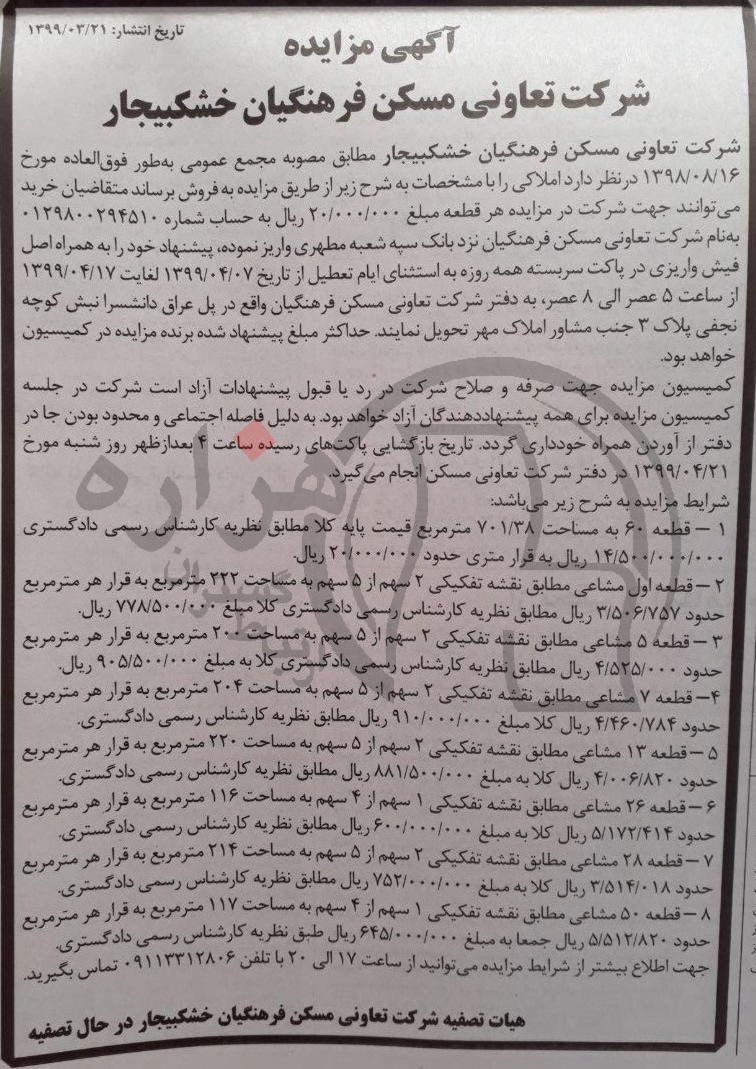 تاریخ انتشار: ۱۳۹۹/۰۳/۲۱
آگهی مزایده
شرکت تعاونی مسکن فرهنگیان خشکبیجار
شرکت تعاونی مسکن فرهنگیان خشکبیجار مطابق مصوبه مجمع عمومی به‌طور فوق‌العاده مورخ
۱۳۹۸/۰۸/۱۶ درنظر دارد املاکی را با مشخصات به شرح زیر از طریق مزایده به فروش برساند متقاضیان خرید
می‌توانند جهت شرکت در مزایده هر قطعه مبلغ ۲۰/۰۰۰/۰۰۰ ریال به حساب شماره ۰۱۲۹۸۰۰۲۹۴۵۱۰
به‌نام شرکت تعاونی مسکن فرهنگیان نزد بانک سپه شعبه مطهری واریز نموده، پیشنهاد خود را به همراه اصل
فیش واریزی در پاکت سربسته همه روزه به استثنای ایام تعطیل از تاریخ ۱۳۹۹/۰۴/۰۷ لغایت ۱۳۹۹/۰۴/۱۷
از ساعت ۵ عصر الی ۸ عصر، به دفتر شرکت تعاونی مسکن فرهنگیان واقع در پل عراق دانشسرا نبش کوچه
نجفی پلاک ۳ جنب مشاور املاک مهر تحویل نمایند. حداکثر مبلغ پیشنهاد شده برنده مزایده در کمیسیون
خواهد بود.
کمیسیون مزایده جهت صرفه و صلاح شرکت در رد یا قبول پیشنهادات آزاد است شرکت در جلسه
کمیسیون مزایده برای همه پیشنهاددهندگان آزاد خواهد بود. به دلیل فاصله اجتماعی و محدود بودن جا در
دفتر از آوردن همراه خودداری گردد. تاریخ بازگشایی پاکت‌های رسیده ساعت ۴ بعدازظهر روز شنبه مورخ
۱۳۹۹/۰۴/۲۱ در دفتر شرکت تعاونی مسکن انجام می‌گیرد.
شرایط مزایده به شرح زیر می‌باشد:
۱ – قطعه ۶۰ به مساحت ۷۰۱/۳۸ مترمربع قیمت پایه کلا مطابق نظریه کارشناس رسمی دادگستری
۱۴/۵۰۰/۰۰۰/۰۰۰ ریال به قرار متری حدود ۲۰/۰۰۰/۰۰۰ ریال.
۲ – قطعه اول مشاعی مطابق نقشه تفکیکی ۲ سهم از ۵ سهم به مساحت ۲۲۲ مترمربع به قرار هر مترمربع
حدود ۳/۵۰۶/۷۵۷ ریال مطابق نظریه کارشناس رسمی دادگستری کلا مبلغ ۷۷۸/۵۰۰/۰۰۰ ریال.
۳ – قطعه ۵ مشاعی مطابق نقشه تفکیکی ۲ سهم از ۵ سهم به مساحت ۲۰۰ مترمربع به قرار هر مترمربع
حدود ۴/۵۲۵/۰۰۰ ریال مطابق نظریه کارشناس رسمی دادگستری کلا به مبلغ ۹۰۵/۵۰۰/۰۰۰ ریال.
۴– قطعه ۷ مشاعی مطابق نقشه تفکیکی ۲ سهم از ۵ سهم به مساحت ۲۰۴ مترمربع به قرار هر مترمربع
حدود ۴/۴۶۰/۷۸۴ ریال کلا مبلغ ۹۱۰/۰۰۰/۰۰۰ ریال مطابق نظریه کارشناس رسمی دادگستری.
۵ – قطعه ۱۳ مشاعی مطابق نقشه تفکیکی ۲ سهم از ۵ سهم به مساحت ۲۲۰ مترمربع به قرار هر مترمربع
حدود ۴/۰۰۶/۸۲۰ ریال کلا به مبلغ ۸۸۱/۵۰۰/۰۰۰ ریال مطابق نظریه کارشناس رسمی دادگستری.
۶ – قطعه ۲۶ مشاعی مطابق نقشه تفکیکی ۱ سهم از ۴ سهم به مساحت ۱۱۶ مترمربع به قرار هر مترمربع
حدود ۵/۱۷۲/۴۱۴ ریال کلا به مبلغ ۶۰۰/۰۰۰/۰۰۰ ریال مطابق نظریه کارشناس رسمی دادگستری.
۷ – قطعه ۲۸ مشاعی مطابق نقشه تفکیکی ۲ سهم از ۵ سهم به مساحت ۲۱۴ مترمربع به قرار هر مترمربع
حدود ۳/۵۱۴/۰۱۸ ریال کلا به مبلغ ۷۵۲/۰۰۰/۰۰۰ ریال مطابق نظریه کارشناس رسمی دادگستری.
۸ – قطعه ۵۰ مشاعی مطابق نقشه تفکیکی ۱ سهم از ۴ سهم به مساحت ۱۱۷ مترمربع به قرار هر مترمربع
حدود ۵/۵۱۲/۸۲۰ ریال جمعا به مبلغ ۶۴۵/۰۰۰/۰۰۰ ریال طبق نظریه کارشناس رسمی دادگستری.
جهت اطلاع بیشتر از شرایط مزایده می‌توانید از ساعت ۱۷ الی ۲۰ با تلفن ۰۹۱۱۳۳۱۲۸۰۶ تماس بگیرید.
هیات تصفیه شرکت تعاونی مسکن فرهنگیان خشکبیجار در حال تصفیه
هزاره